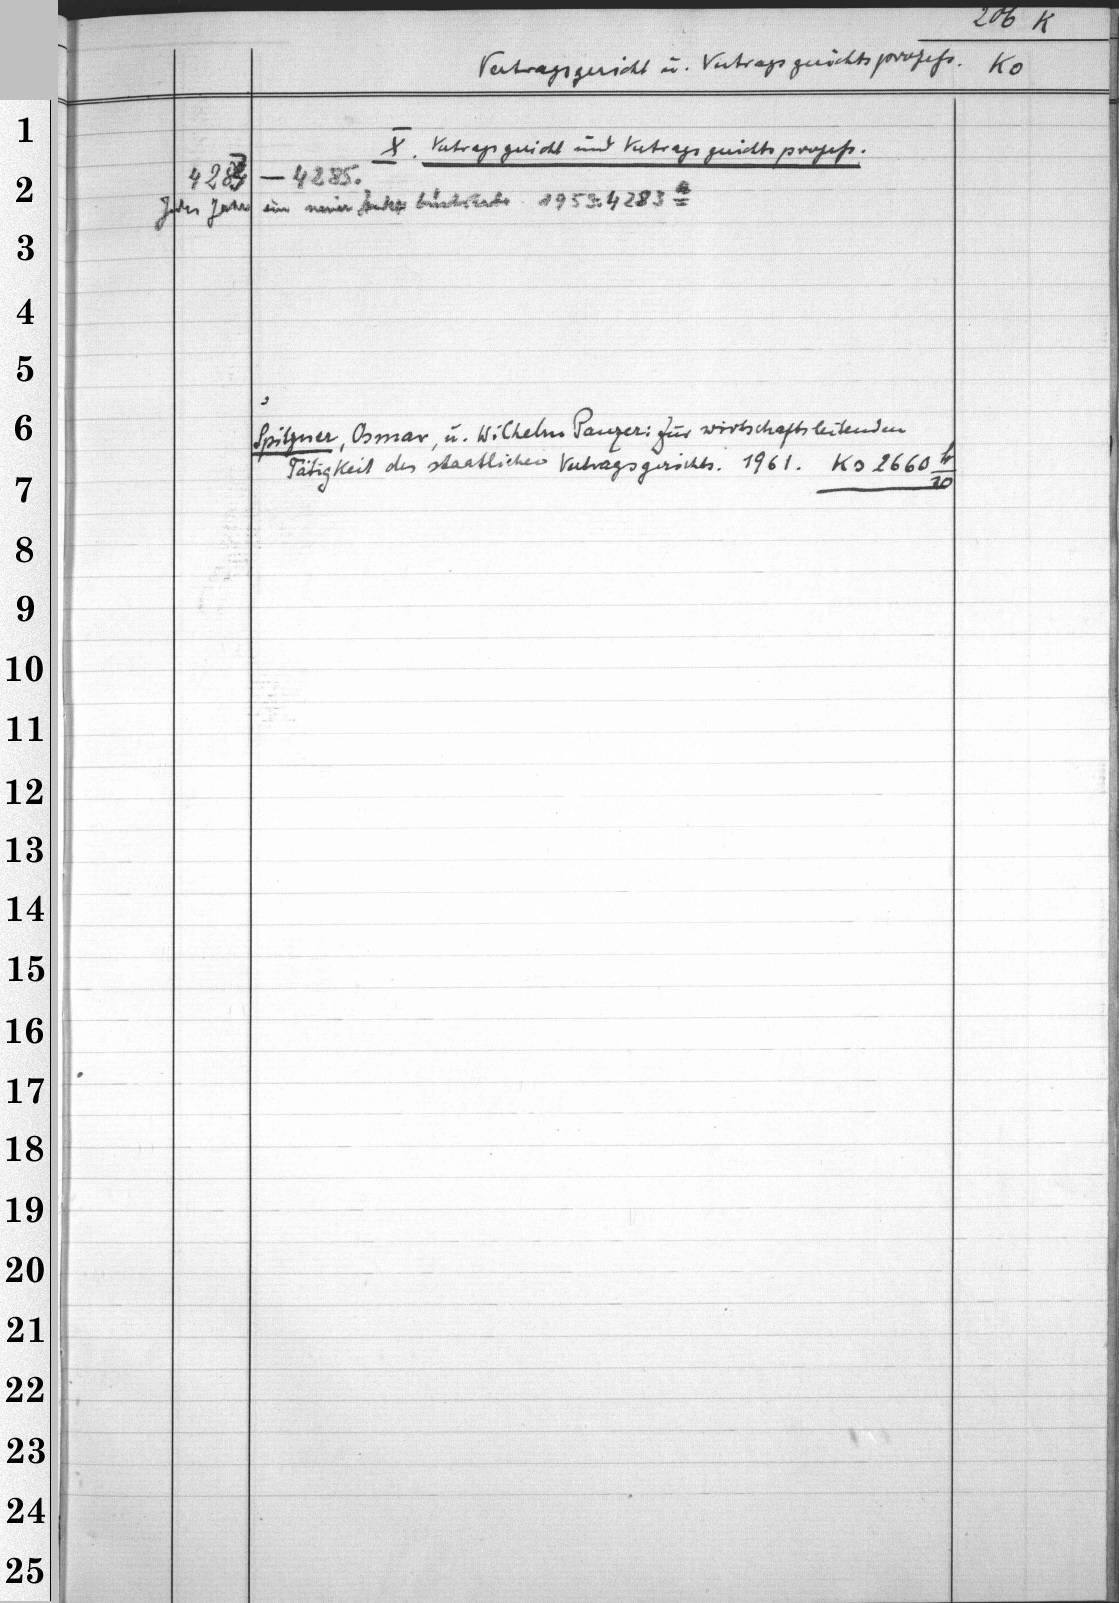 206 K
Vertragsgericht u. Vertragsgerichtsprozeß. Ko
X. Vertragsgericht und Vertragsgerichtsprozeß.
4283 — 4285.
Jedes Jahr ein neuer Index buchstabe 1953: 4283 a
Spitzner, Osmar, u. Wilhelm Panzer: Zur wirtschaftsleitenden
Tätigkeit des staatlichen Vertragsgerichts. 1961. Ko 2660
20
1
2
3
4
5
6
7
8
9
10
11
12
13
14
15
16
17
18
19
20
21
22
23
24
25